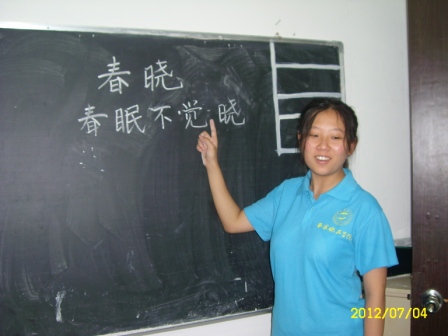 春晓
春眠不觉晓
2012/07/04